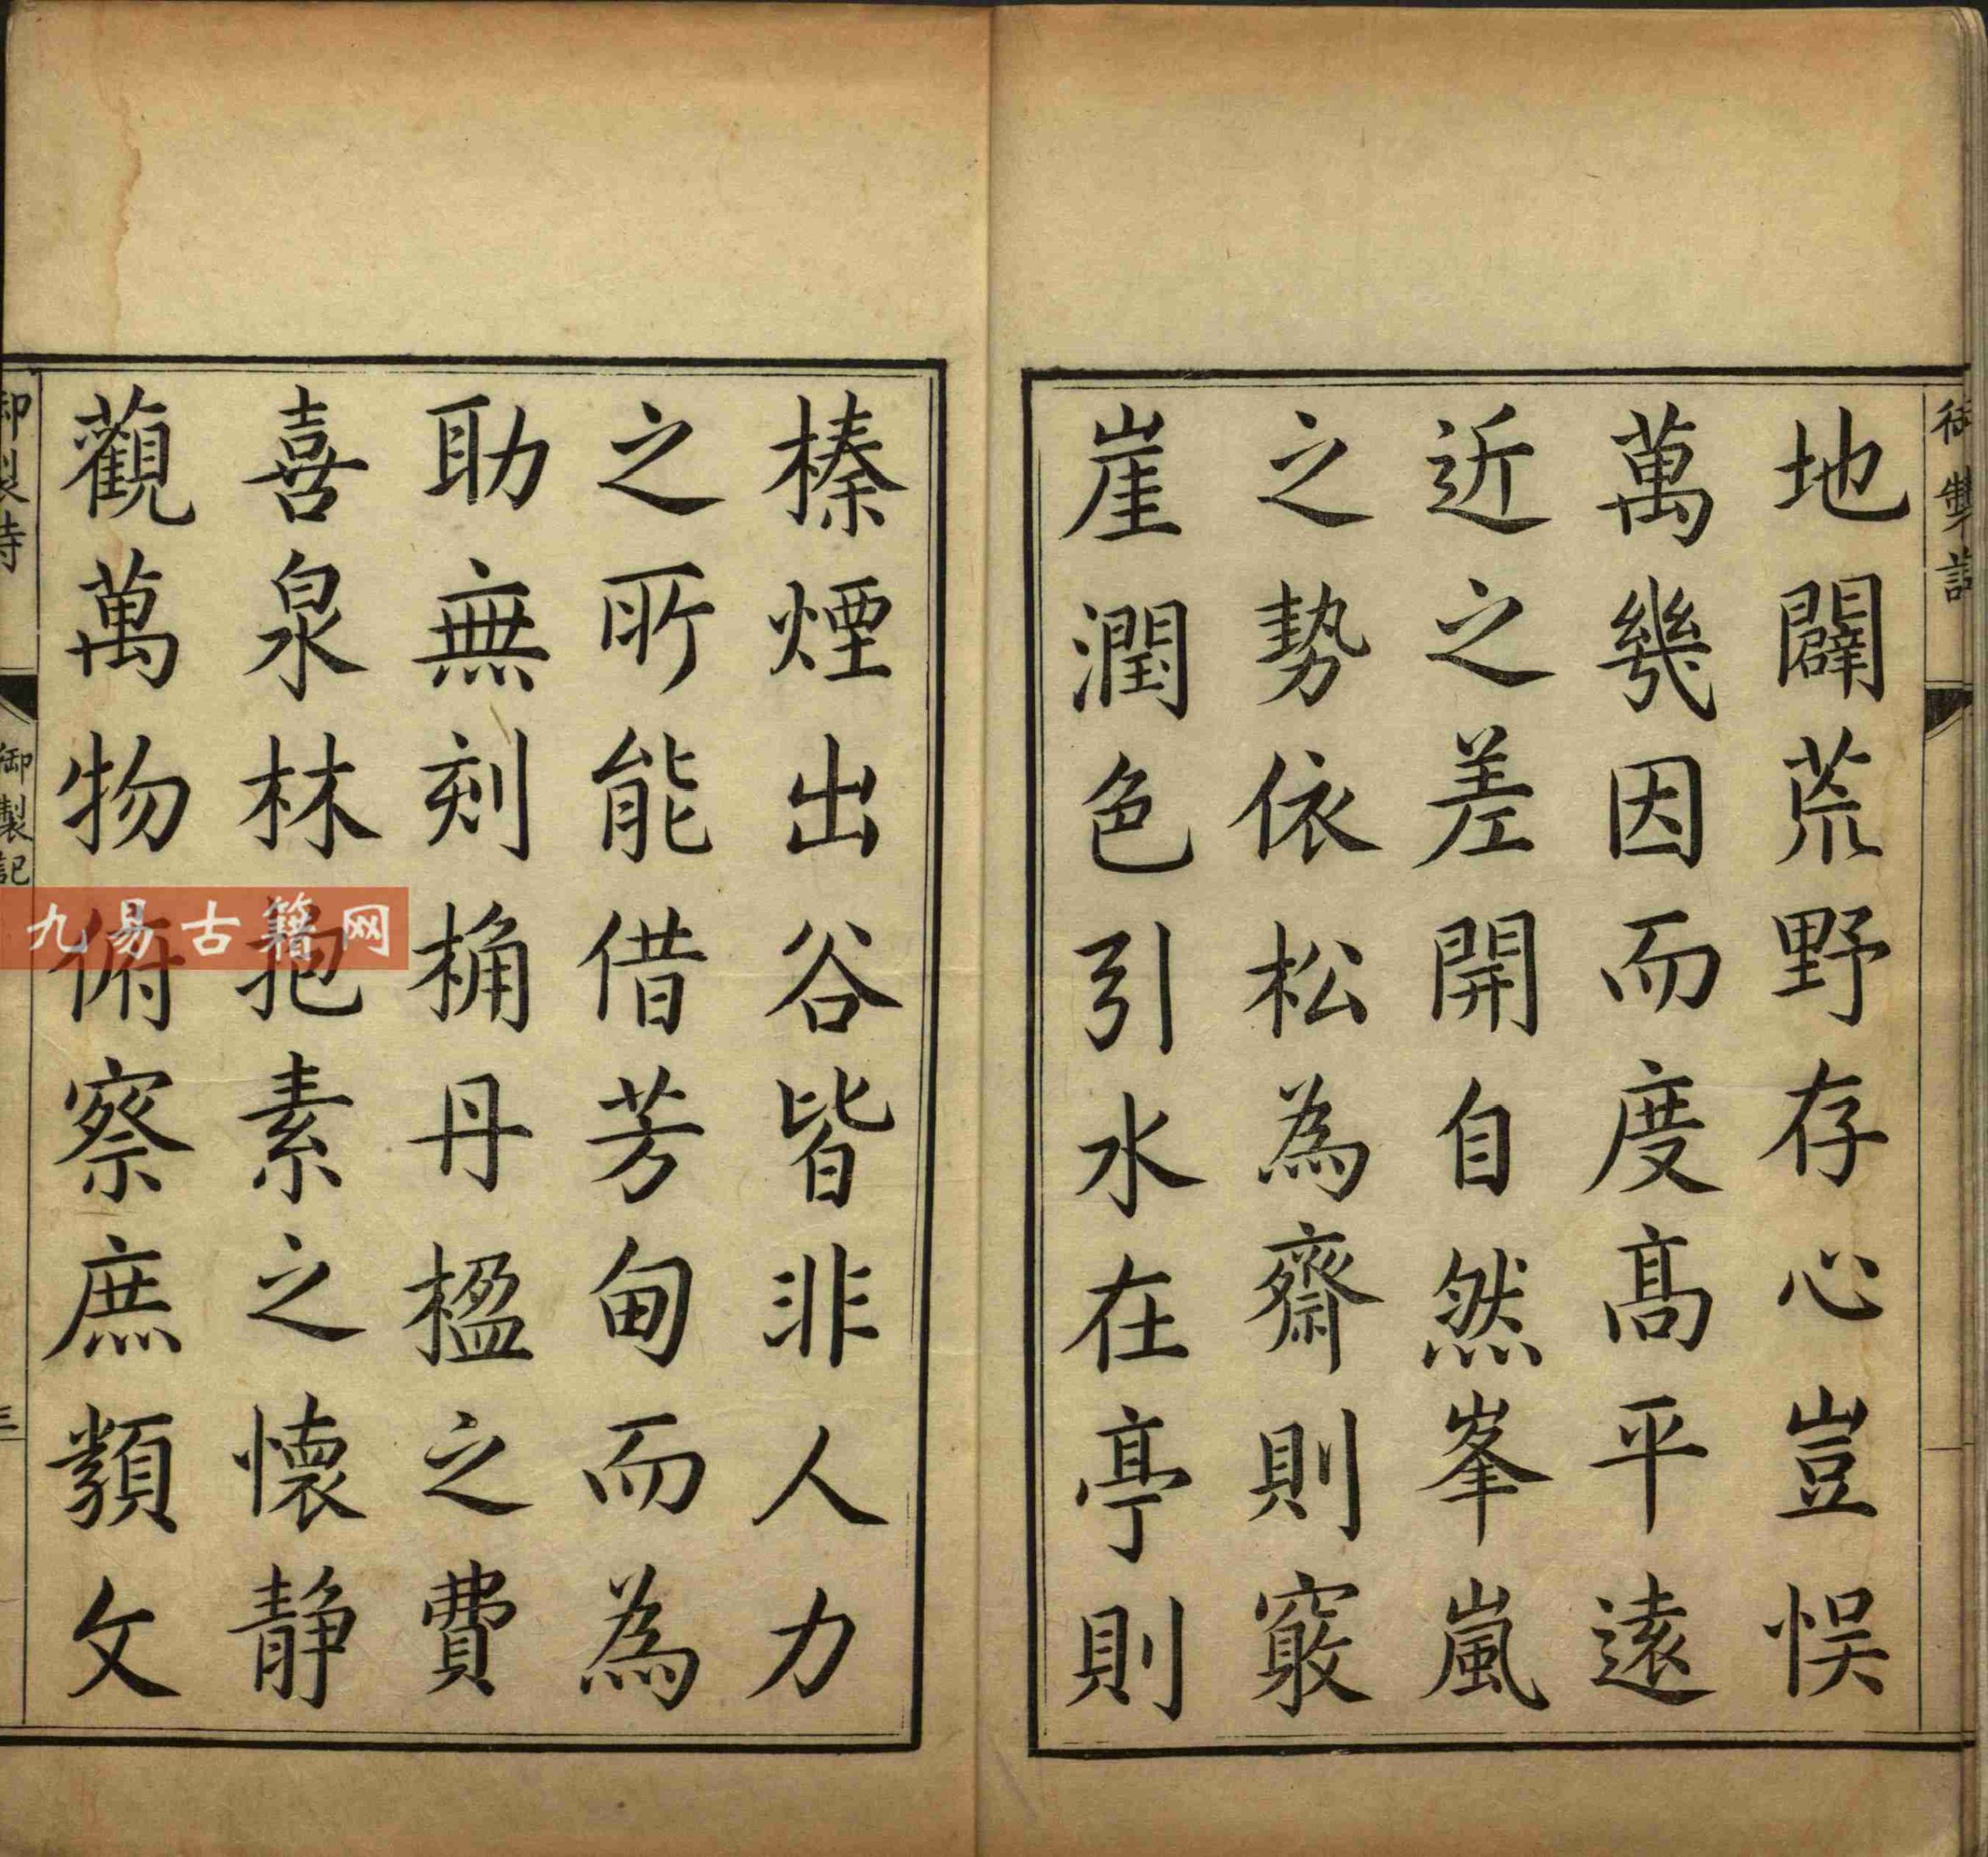 地闢荒野存心豈悞
萬幾因而度高平遠
近之差開自然峯嵐
之勢依松為齋則竅
崖潤色引水在亭則
榛煙出谷皆非人力
之所能借芳甸而為
助無刻桷丹楹之費
喜泉林抱素之懷静
觀萬物俯察庶類文
御製詩
御製記
三
九易古籍网